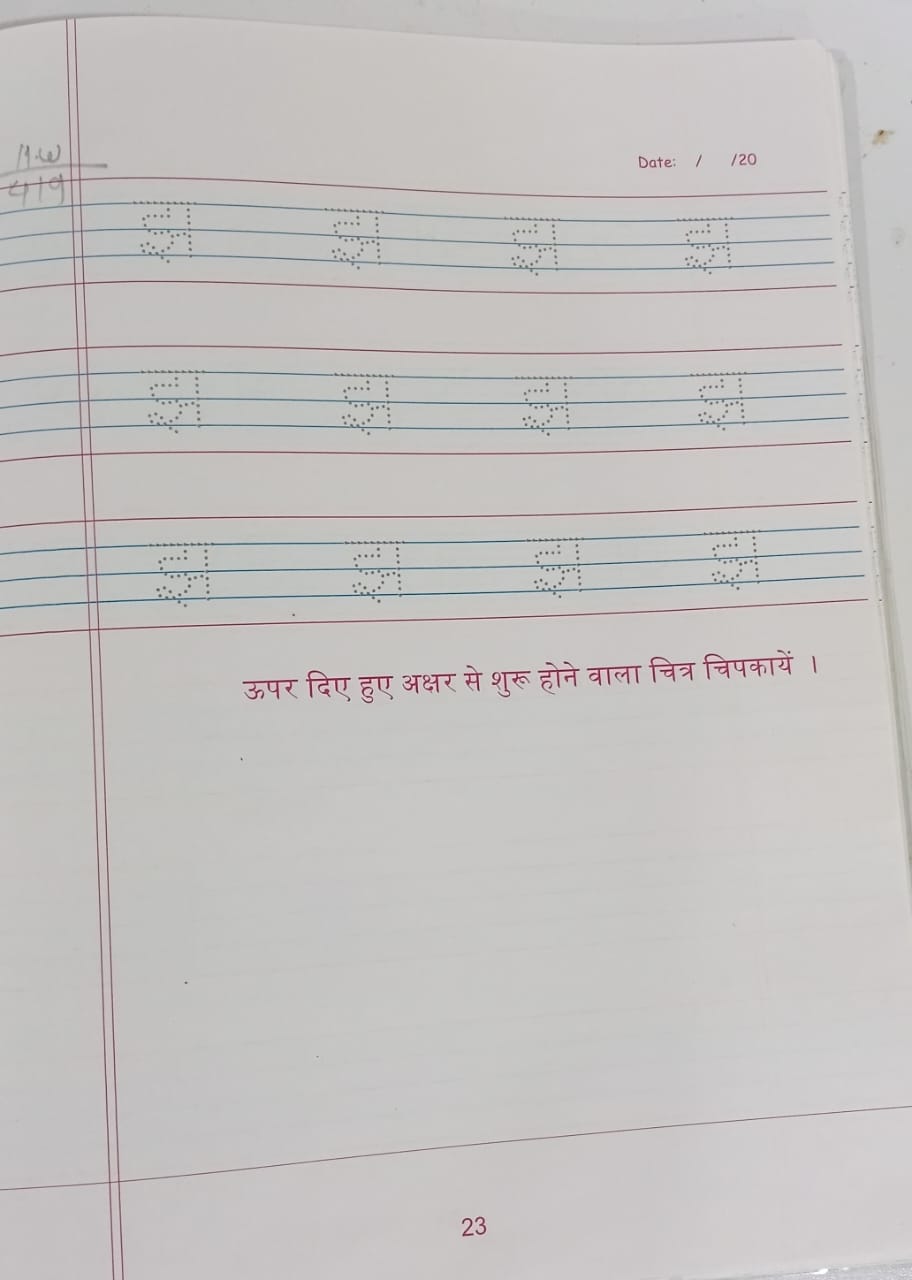 H.W
4/9
Date: / /20
झ झ झ झ
झ झ झ झ
झ झ झ झ
ऊपर दिए हुए अक्षर से शुरू होने वाला चित्र चिपकायें ।
23